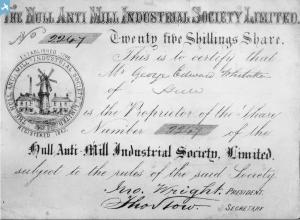 THE HULL ANTI MILL INDUSTRIAL SOCIETY LIMITED.
No 2247 Twenty five Shillings Share.
This is to certify that
Mr George Edward Whitaker
of Hull
is the Proprietor of the Share
Number 2247 of the
Hull Anti-Mill Industrial Society, Limited.
subject to the rules of the said Society
Jno. Wright, PRESIDENT.
SECRETARY
ESTABLISHED
REGISTERED